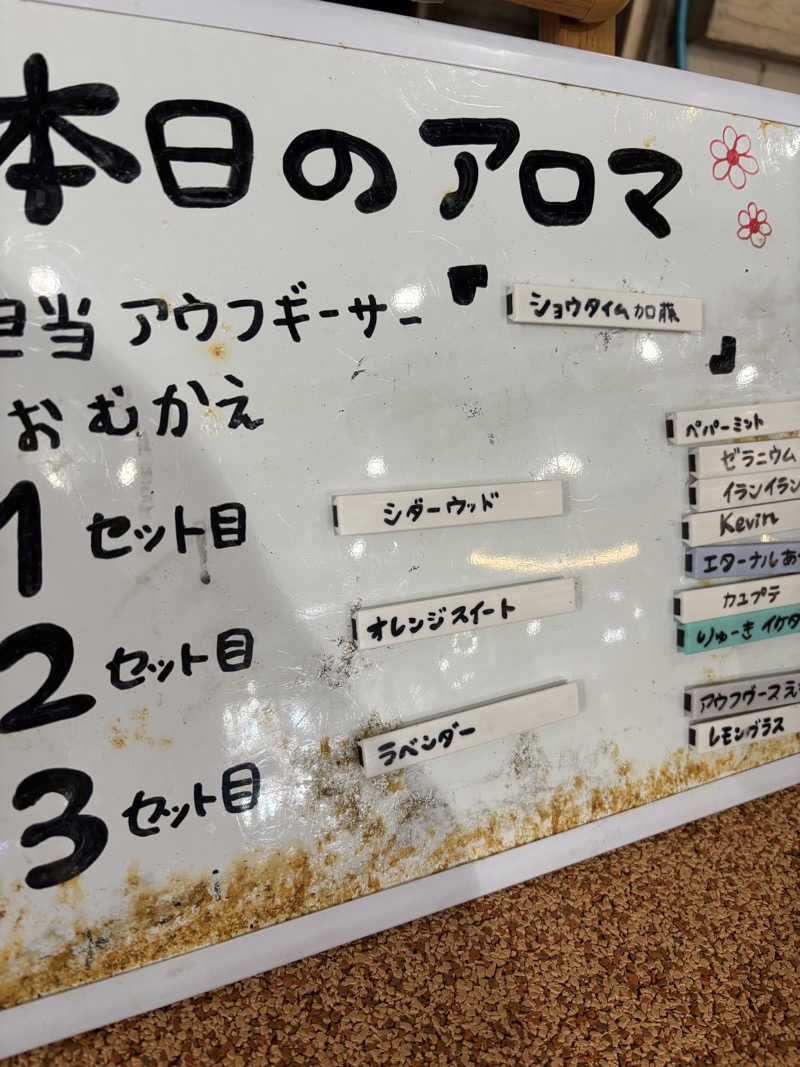 本日のアロマ
担当 アウフギーサー 『 ショウタイム加藤 』
おむかえ
1セット目 シダーウッド
2セット目 オレンジスイート
3セット目 ラベンダー
ペパーミント
ゼラニウム
イランイラン
Kevin
エターナル
カユプテ
りゅーき イケダ
アウフグース
レモングラス